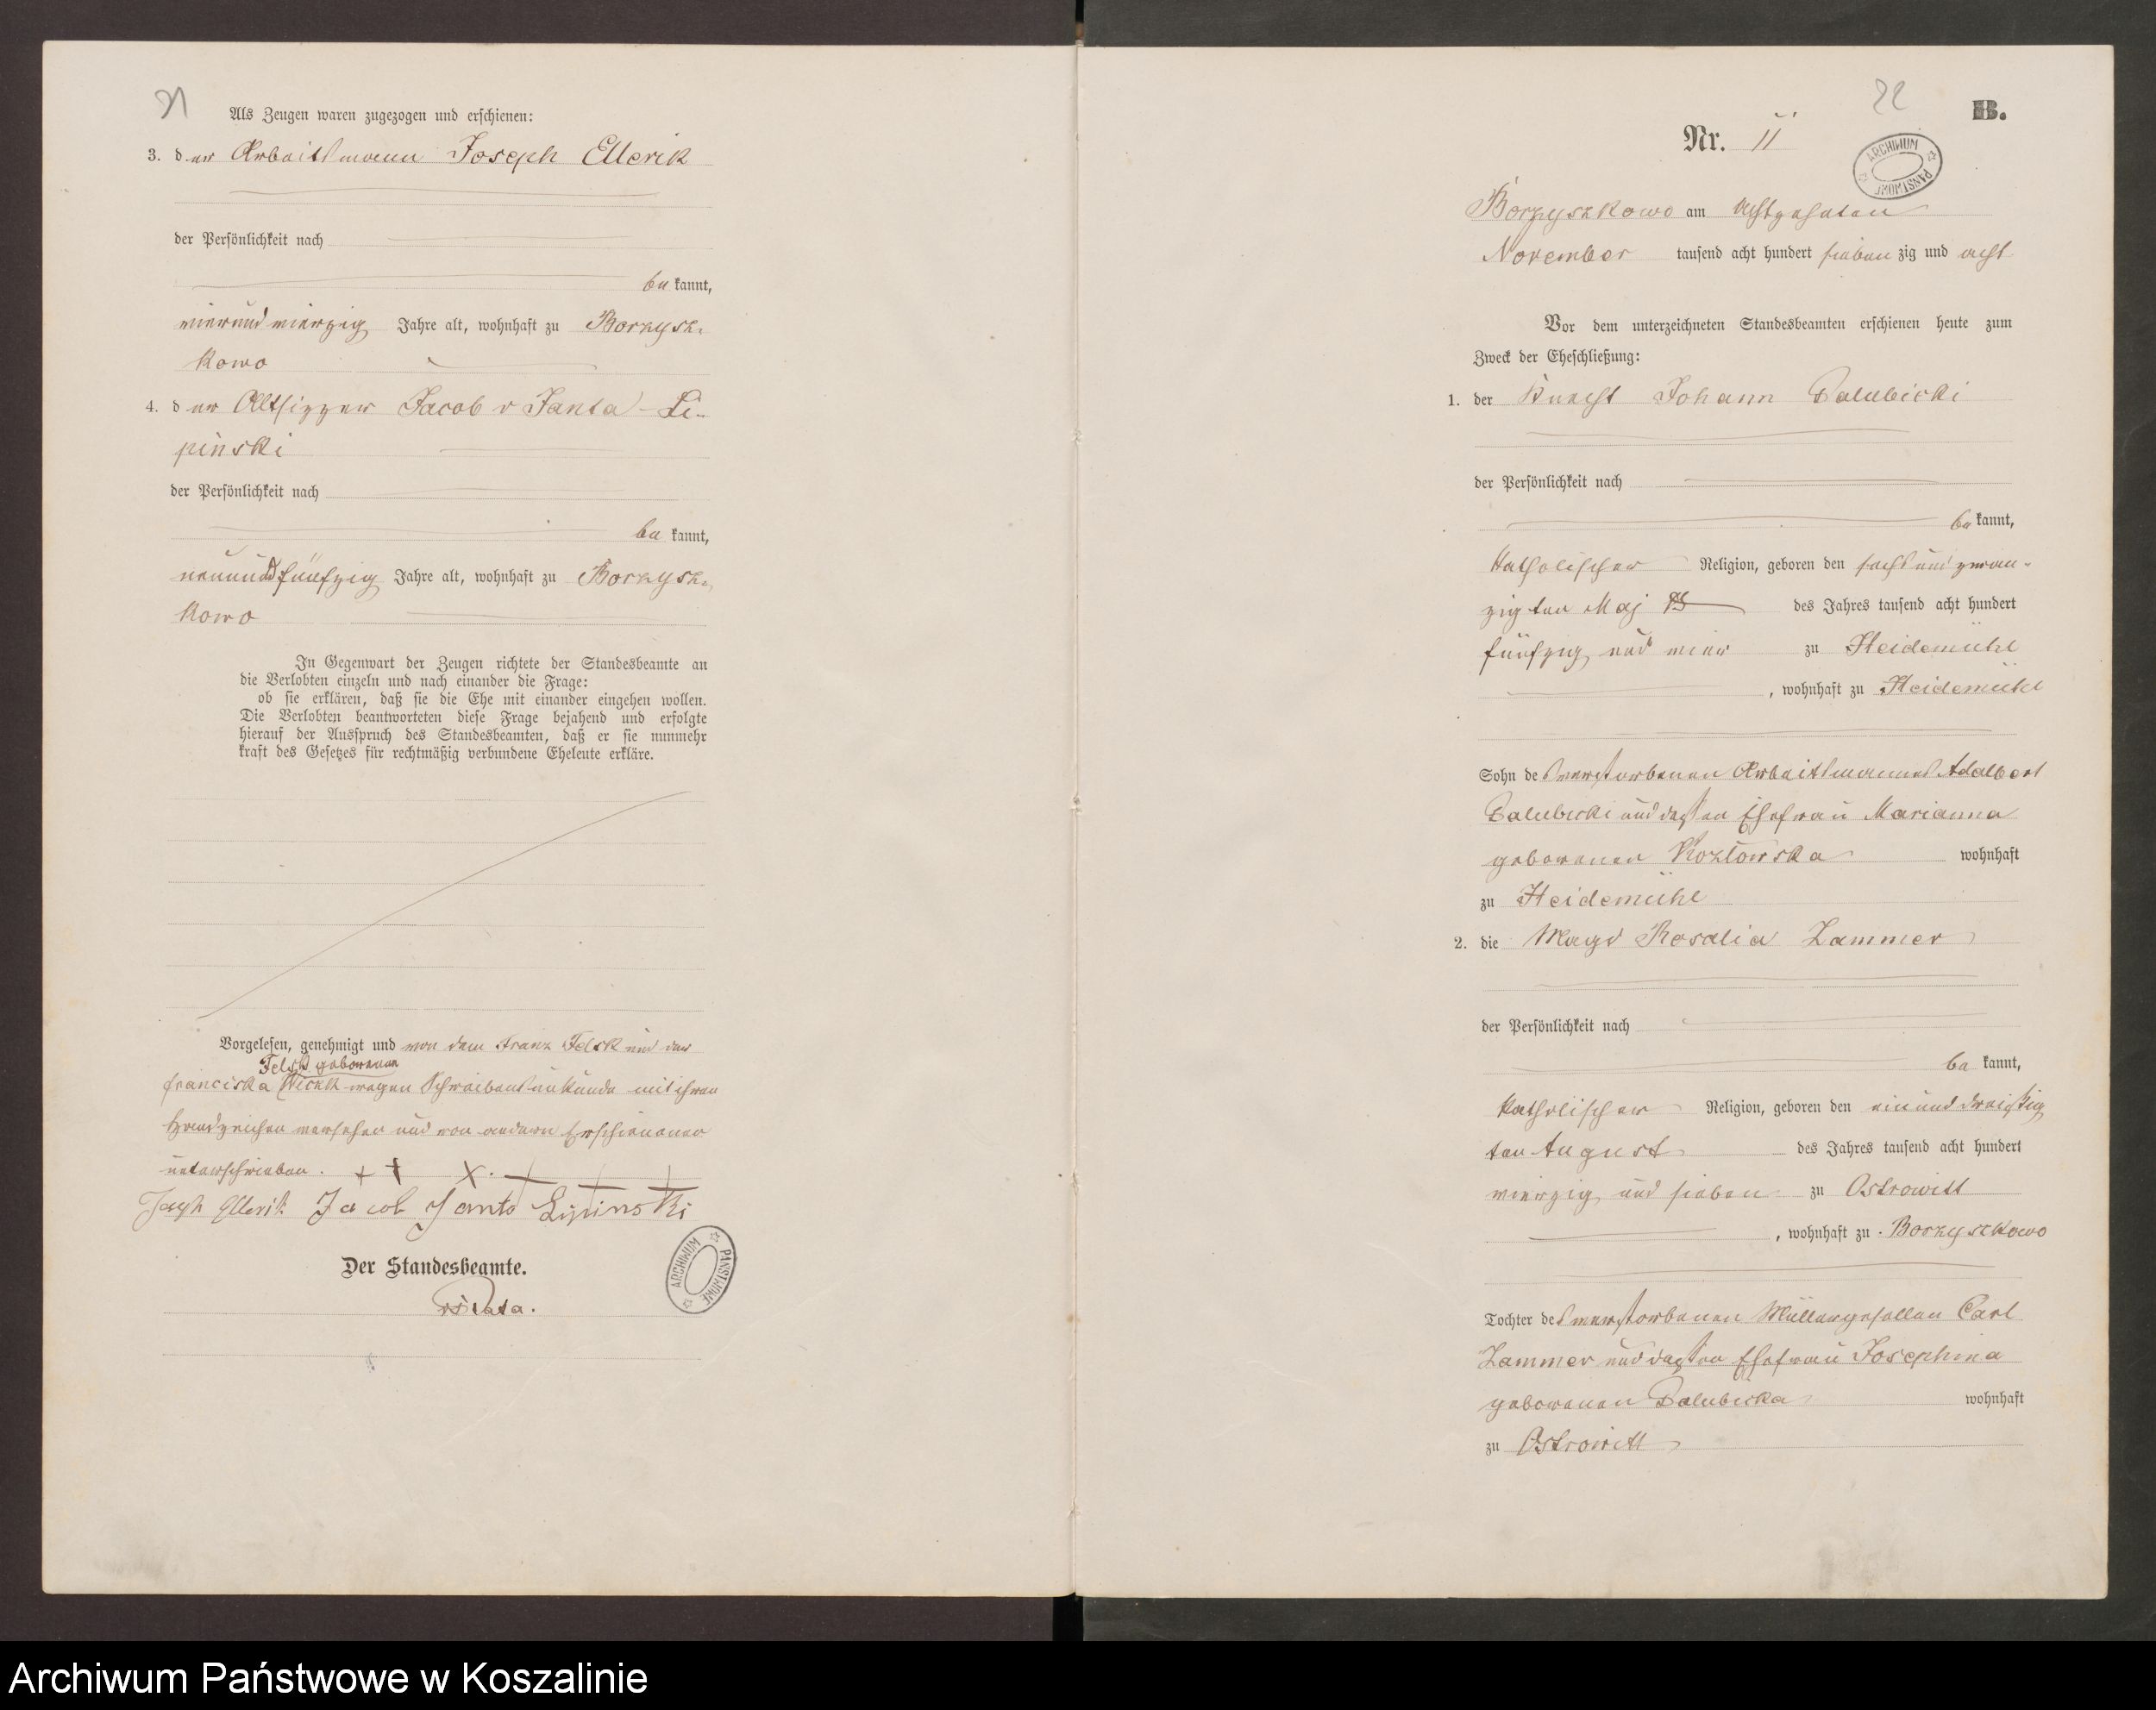 21
Als Zeugen waren zugezogen und erschienen:
3. der Arbeitsmann Joseph Ellerik
der Persönlichkeit nach
be kannt,
vierundvierzig Jahre alt, wohnhaft zu Borzysz-
kowo
4. der Altsitzer Jacob v Janta-Li-
pinski
der Persönlichkeit nach
be kannt,
neunundfünfzig Jahre alt, wohnhaft zu Borzysz-
kowo
In Gegenwart der Zeugen richtete der Standesbeamte an
die Verlobten einzeln und nach einander die Frage:
ob sie erklären, daß sie die Ehe mit einander eingehen wollen.
Die Verlobten beantworteten diese Frage bejahend und erfolgte
hierauf der Ausspruch des Standesbeamten, daß er sie nunmehr
kraft des Gesetzes für rechtmäßig verbundene Eheleute erkläre.
Vorgelesen, genehmigt und von dem Franz Felsk und der
Felsk geborenen
Franciska wegen Schreibensunkunde mit ihren
Handzeichen versehen und von andern Erschienenen
unterschrieben. + + X.
Joseph Ellerik Jacob Janta Lipinski
Der Standesbeamte.
ARCHIWUM PAŃSTWOWE
22
B.
Nr. 11
ARCHIWUM PAŃSTWOWE
Borzyszkowo am achtzehnten
November tausend acht hundert sieben zig und acht
Vor dem unterzeichneten Standesbeamten erschienen heute zum
Zweck der Eheschließung:
1. der Knecht Johann Palubicki
der Persönlichkeit nach
be kannt,
katholischer Religion, geboren den sechsundzwan-
zigten Maj des Jahres tausend acht hundert
fünfzig und vier zu Heidemühl
, wohnhaft zu Heidemühl
Sohn des verstorbenen Arbeitsmannes Adalbert
Palubicki und dessen Ehefrau Marianna
geborenen Kozlowska wohnhaft
zu Heidemühl
2. die Magd Rosalia Lammer
der Persönlichkeit nach
be kannt,
katholischer Religion, geboren den einunddreißig
ten August des Jahres tausend acht hundert
vierzig und sieben zu Ostrowitt
, wohnhaft zu Borzyszkowo
Tochter des verstorbenen Müllergesellen Carl
Lammer und dessen Ehefrau Josephina
geborenen Palubicka wohnhaft
zu Ostrowitt
Archiwum Państwowe w Koszalinie